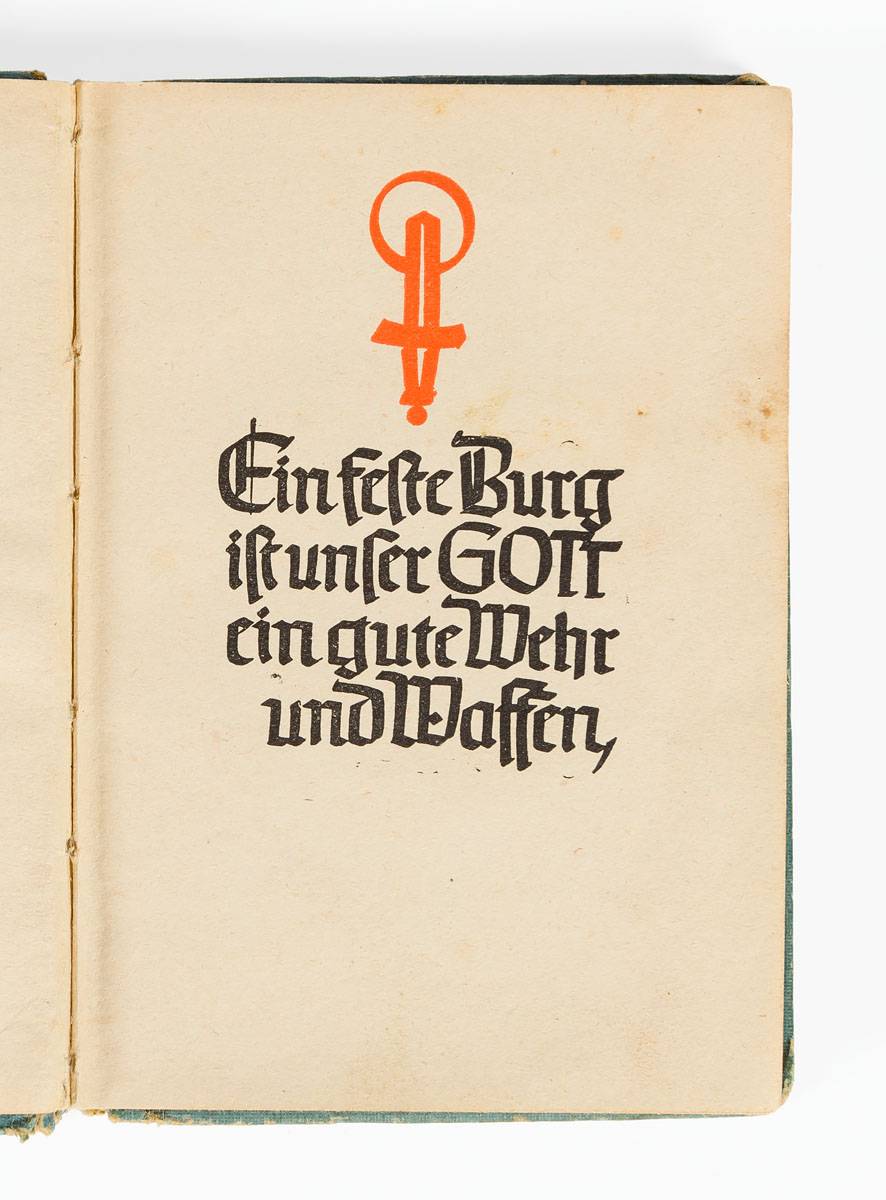 Ein feste Burg
ist unser GOTT
ein gute Wehr
und Waffen,